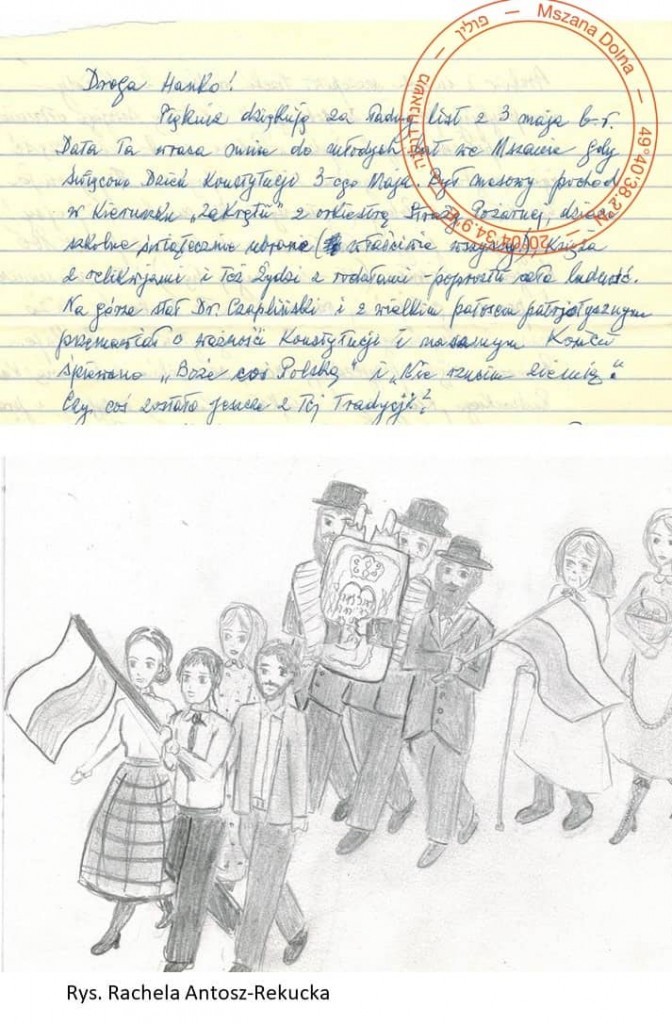 Droga Hanko!
Pięknie dziękuję za ładny list z 3 maja b.r.
Data ta wraca mnie do młodych lat we Mszanie gdy
święcono Dzień Konstytucji 3-ego Maja. Był masowy pochód
w kierunku „Zakrętu" z orkiestrą Straży Pożarnej, dzieci
szkolne świątecznie ubrane (właściwie wszyscy!) Księża
z relikwijami i też Żydzi z rodałami - poprostu cała ludność.
Na górze stał Dr. Czapliński i z wielkim patosem patrjotycznym
przemawiał o ważności Konstytucji i na samym końcu
śpiewano „Boże coś Polskę" i „Nie rzucim ziemię."
Czy coś zostało jeszcze z tej tradycji??
פולין — Mszana Dolna — 49°40'38.2
Rys. Rachela Antosz-Rekucka